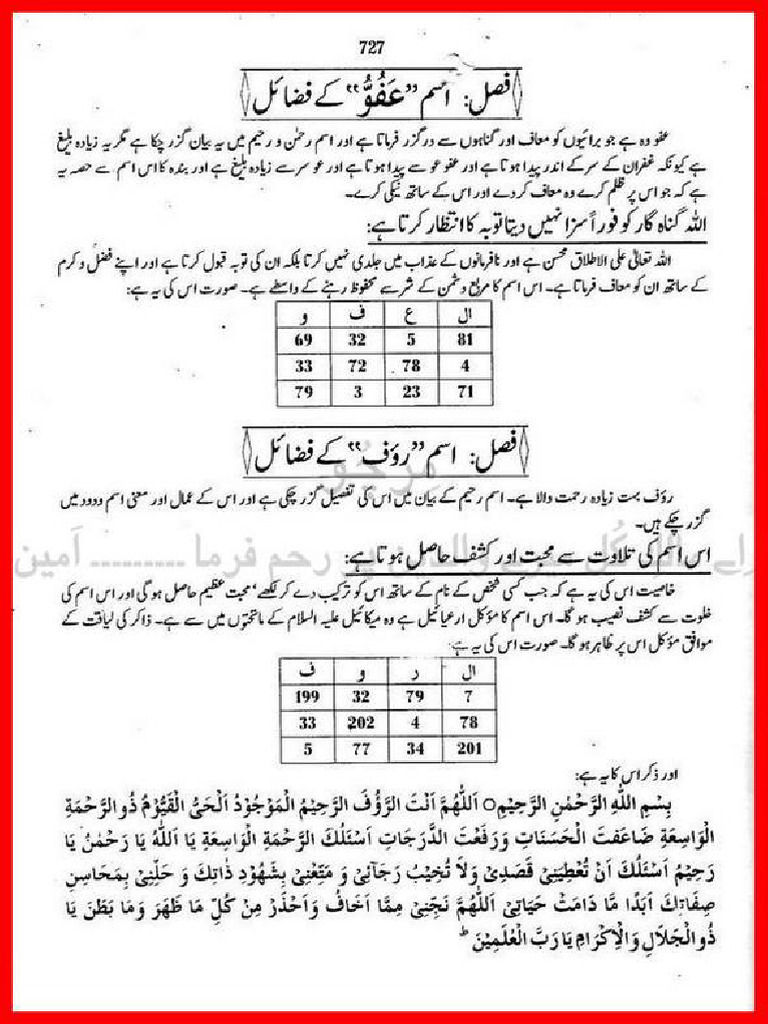 727
فصل: اسم ”عَفُوُّ“ کے فضائل
عفو وہ ہے جو برائیوں کو معاف اور گناہوں سے درگزر فرماتا ہے اور اسم رحمٰن و رحیم میں یہ بیان گزر چکا ہے مگر یہ زیادہ بلیغ
ہے کیونکہ غفران کے سر کے اندر پیدا ہوتا ہے اور عفو عو سے پیدا ہوتا ہے اور عو سر سے زیادہ بلیغ ہے اور بندہ کا اس اسم سے حصہ یہ
ہے کہ جو اس پر ظلم کرے وہ معاف کر دے اور اس کے ساتھ نیکی کرے۔
اللہ گناہ گار کو فوراً سزا نہیں دیتا توبہ کا انتظار کرتا ہے:
اللہ تعالیٰ علی الاطلاق محسن ہے اور نافرمانوں کے عذاب میں جلدی نہیں کرتا بلکہ ان کی توبہ قبول کرتا ہے اور اپنے فضل و کرم
کے ساتھ ان کو معاف فرماتا ہے۔ اس اسم کا مربع دشمن کے شر سے محفوظ رہنے کے واسطے ہے۔ صورت اس کی یہ ہے:
ال ع ف و
81 5 32 69
4 78 72 33
71 23 3 79
فصل: اسم ”رؤف“ کے فضائل
رؤف بہت زیادہ رحمت والا ہے۔ اسم رحیم کے بیان میں اس کی تفصیل گزر چکی ہے اور اس کے عمال اور معنی اسم ودود میں
گزر چکے ہیں۔
اس اسم کی تلاوت سے محبت اور کشف حاصل ہوتا ہے:
خاصیت اس کی یہ ہے کہ جب کسی شخص کے نام کے ساتھ اس کو ترکیب دے کر لکھے‘ محبت عظیم حاصل ہو گی اور اس اسم کی
خلوت سے کشف نصیب ہو گا۔ اس اسم کا مؤکل ارعیائیل ہے وہ میکائیل علیہ السلام کے ماتحتوں میں سے ہے۔ ذاکر کی لیاقت کے
موافق مؤکل اس پر ظاہر ہو گا۔ صورت اس کی یہ ہے:
ال ر و ف
7 79 32 199
78 4 202 33
201 34 77 5
اور ذکر اس کا یہ ہے:
بِسْمِ اللّٰهِ الرَّحْمٰنِ الرَّحِيْمِ○ اَللّٰهُمَّ اَنْتَ الرَّؤُفُ الرَّحِيْمُ الْمَوْجُوْدُ اَلْحَىُّ الْقَيُّوْمُ ذُوالرَّحْمَةِ
الْوَاسِعَةِ ضَاعَفْتَ الْحَسَنَاتِ وَرَفَعْتَ الدَّرَجَاتِ اَسْئَلُكَ الرَّحْمَةَ الْوَاسِعَةَ يَا اَللّٰهُ يَا رَحْمٰنُ يَا
رَحِيْمُ اَسْئَلُكَ اَنْ تُعْطِيَنِىْ قَصْدِىْ وَلَا تُخَيِّبْ رَجَآئِىْ وَ مَتِّعْنِىْ بِشُهُوْدِ ذَاتِكَ وَ حَلِّنِىْ بِمَحَاسِنِ
صِفَاتِكَ اَبَدًا مَّا دَامَتْ حَيَاتِىْ اَللّٰهُمَّ نَجِّنِىْ مِمَّا اَخَافُ وَاَحْذَرُ مِنْ كُلِّ مَا ظَهَرَ وَمَا بَطَنَ يَا
ذُوالْجَلَالِ وَالْاِكْرَامِ يَا رَبَّ الْعٰلَمِيْنَ۔ ط